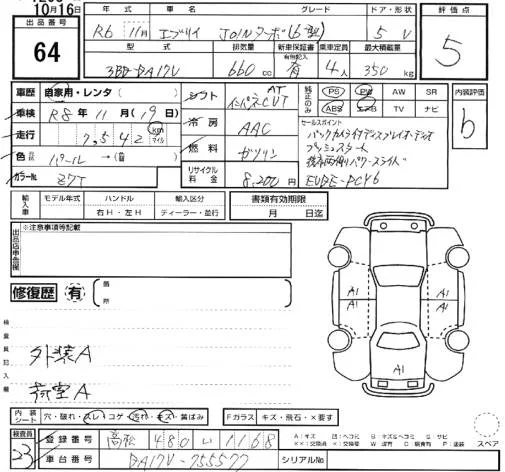 10月16日
出品番号
64
年式 車名 グレード ドア・形状
R6 11月 エブリイ JOINターボ(6型) 5 V
型式 排気量 新車保証書 乗車定員 最大積載量
有無記入
3BD-DA17V 660 cc 有 4人 350 kg
評価点
5
車歴 自家用・レンタ( )
車検 R8年11月(19日)
走行 7,542 km マイル
色 パール → ( )
カラーNo. Z7T
シフト AT インパネCVT
冷房 AAC
燃料 ガソリン
リサイクル料金 8,200円
純正のみ
PS PW AW SR
ABS エアB TV ナビ
内装評価
b
セールスポイント
バックカメラ付ディスプレイオーディオ
プッシュスタート
後席両側パワースライド
輸入車 モデル年式 ハンドル 輸入区分 書類有効期限
右H・左H ディーラー・並行 月 日迄
出品店申告欄
※注意事項等記載
修復歴 有 ( 箇所
検査員記入欄
外装A
荷室A
A1 A1
A1 A1
A1
内装シート 穴・破れ・スレ・コゲ・汚れ・キズ・黄ばみ Fガラス キズ・飛石・×要す
スペア
検査員
23
登録番号 高松 480 い 1168
車台番号 DA17V-755577 シリアルNo.